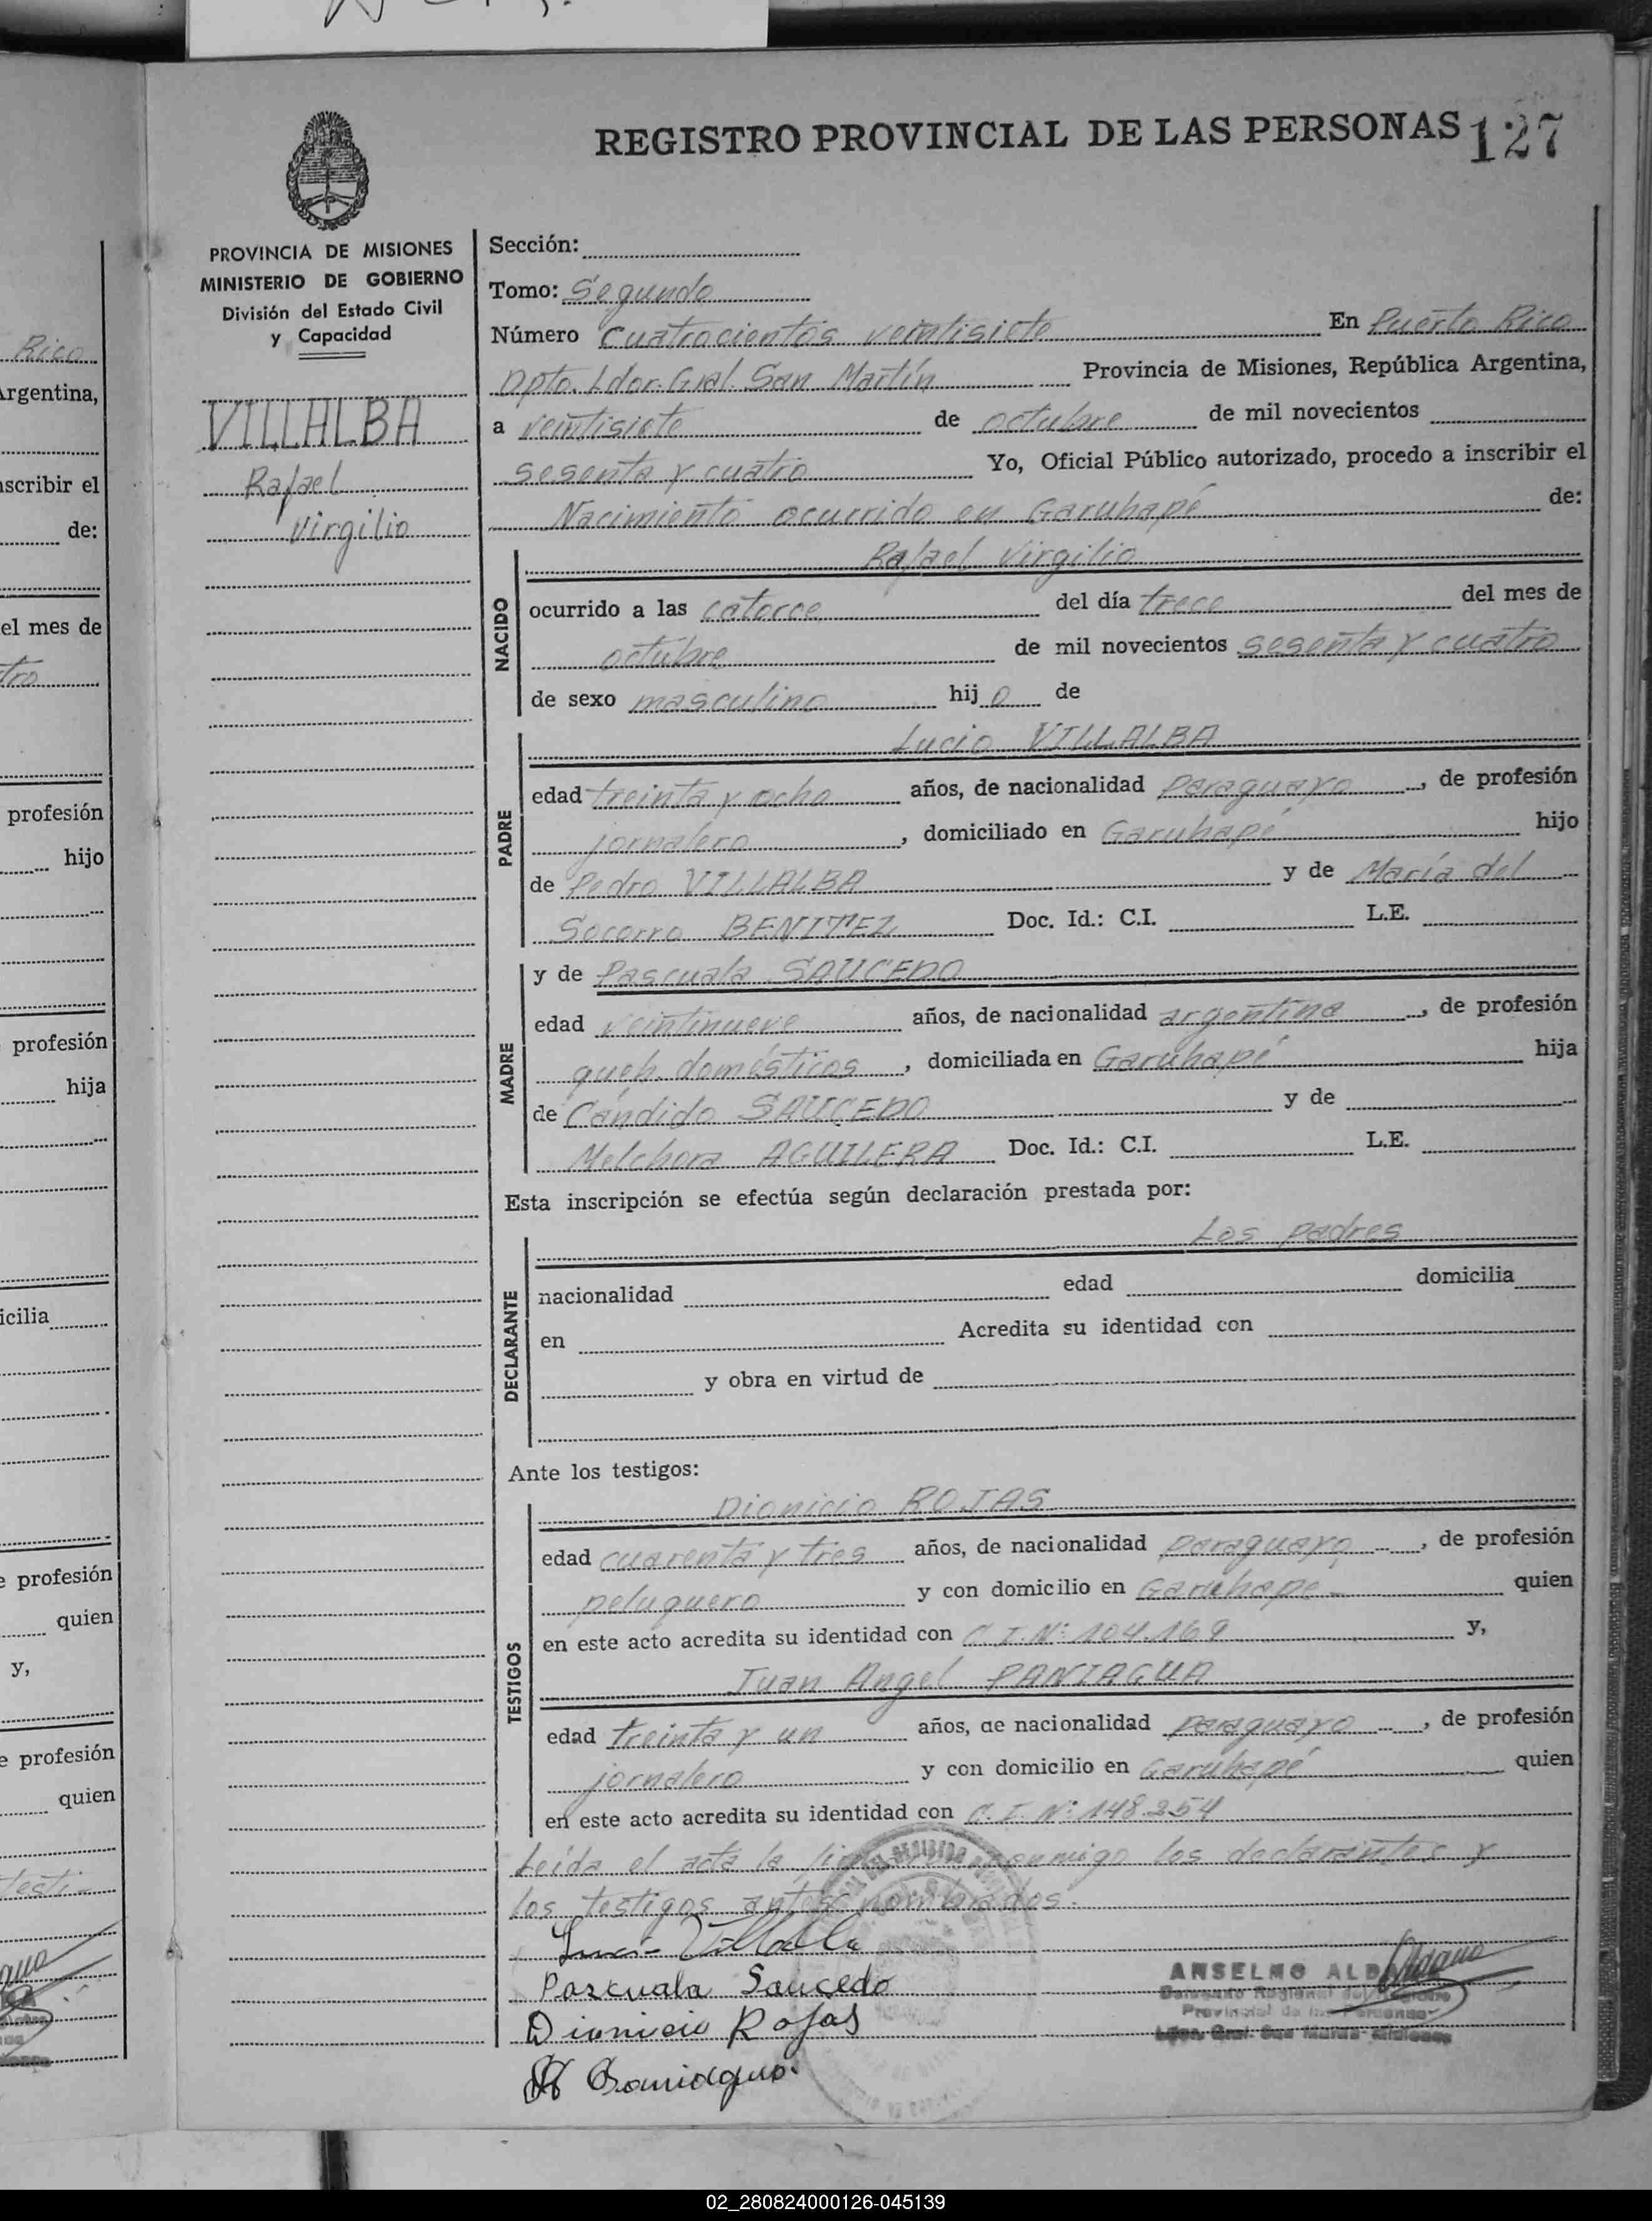 REGISTRO PROVINCIAL DE LAS PERSONAS 127
PROVINCIA DE MISIONES
MINISTERIO DE GOBIERNO
División del Estado Civil
y Capacidad
VILLALBA
Rafael
Virgilio
Sección:
Tomo: Segundo
Número Cuatrocientos veintisiete En Puerto Rico
Dpto. Ldor. Gral. San Martín Provincia de Misiones, República Argentina,
a veintisiete de octubre de mil novecientos
sesenta y cuatro Yo, Oficial Público autorizado, procedo a inscribir el
Nacimiento ocurrido en Garuhapé de:
NACIDO
Rafael Virgilio
ocurrido a las catorce del día trece del mes de
octubre de mil novecientos sesenta y cuatro
de sexo masculino hijo de
PADRE
Lucio VILLALBA
edad treinta y ocho años, de nacionalidad paraguayo, de profesión
jornalero, domiciliado en Garuhapé hijo
de Pedro VILLALBA y de María del
Socorro BENITEZ Doc. Id.: C.I. L.E.
MADRE
y de Pascuala SAUCEDO
edad veintinueve años, de nacionalidad argentina, de profesión
queh. domésticos, domiciliada en Garuhapé hija
de Cándido SAUCEDO y de
Melchora AGUILERA Doc. Id.: C.I. L.E.
Esta inscripción se efectúa según declaración prestada por:
DECLARANTE
Los padres
nacionalidad edad domicilia
en Acredita su identidad con
y obra en virtud de
Ante los testigos:
TESTIGOS
Dionicio ROJAS
edad cuarenta y tres años, de nacionalidad paraguayo, de profesión
peluquero y con domicilio en Garuhapé quien
en este acto acredita su identidad con C.I. Nº 104.169 y,
Juan Angel PANIAGUA
edad treinta y un años, de nacionalidad paraguayo, de profesión
jornalero y con domicilio en Garuhapé quien
en este acto acredita su identidad con C.I. Nº 148.254
Leída el acta la conmigo los declarantes y
los testigos antes nombrados.
Lucio Villalba
Pascuala Saucedo
Dionicio Rojas
Paniagua
ANSELMO
02_280824000126-045139